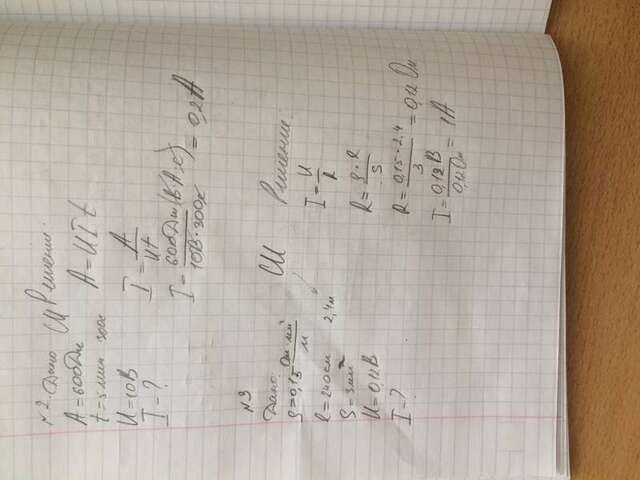 №2. Дано: СИ Решение:
A=600Дж
t=5мин 300с
U=10В
I-?
A=UIt
I=A/Ut
I=600Дж(В·А·с)/10В·300с=0,2А
№3
Дано: СИ Решение:
ρ=0,15 Ом·мм²/м
l=240см 2,4м
S=3мм²
U=0,12В
I-?
I=U/R
R=ρ·l/S
R=0,15·2,4/3=0,12Ом
I=0,12В/0,12Ом=1А